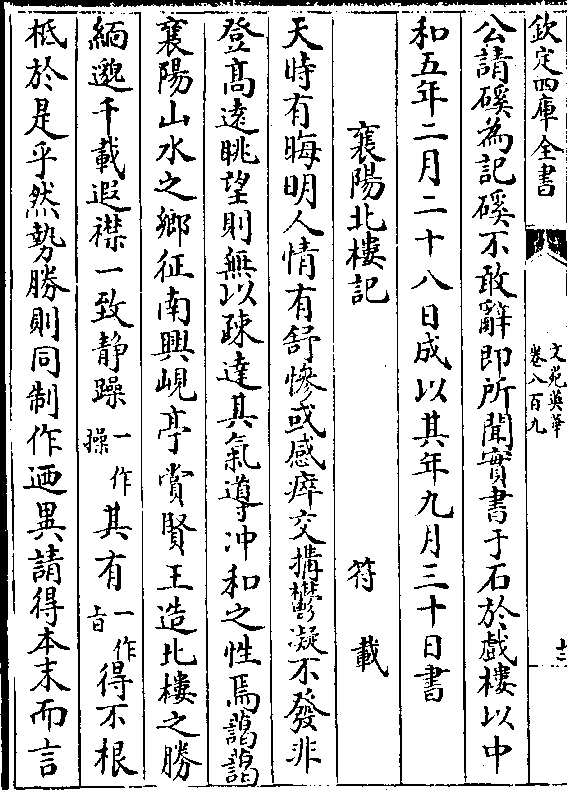 欽定四庫全書
文苑英華
卷八百九
十三
公請磎為記磎不敢辭即所聞實書于石於戲樓以中
和五年二月二十八日成以其年九月三十日書
襄陽北樓記 符載
天時有晦明人情有舒慘或感瘁交搆鬱凝不發非
登髙逺眺望則無以疎達其氣導沖和之性焉藹藹
襄陽山水之鄉征南興峴亭賞賢王造北樓之勝
緬邈千載遐襟一致静躁一作操其有一作旨得不根
柢於是乎然勢勝則同制作迺異請得本末而言